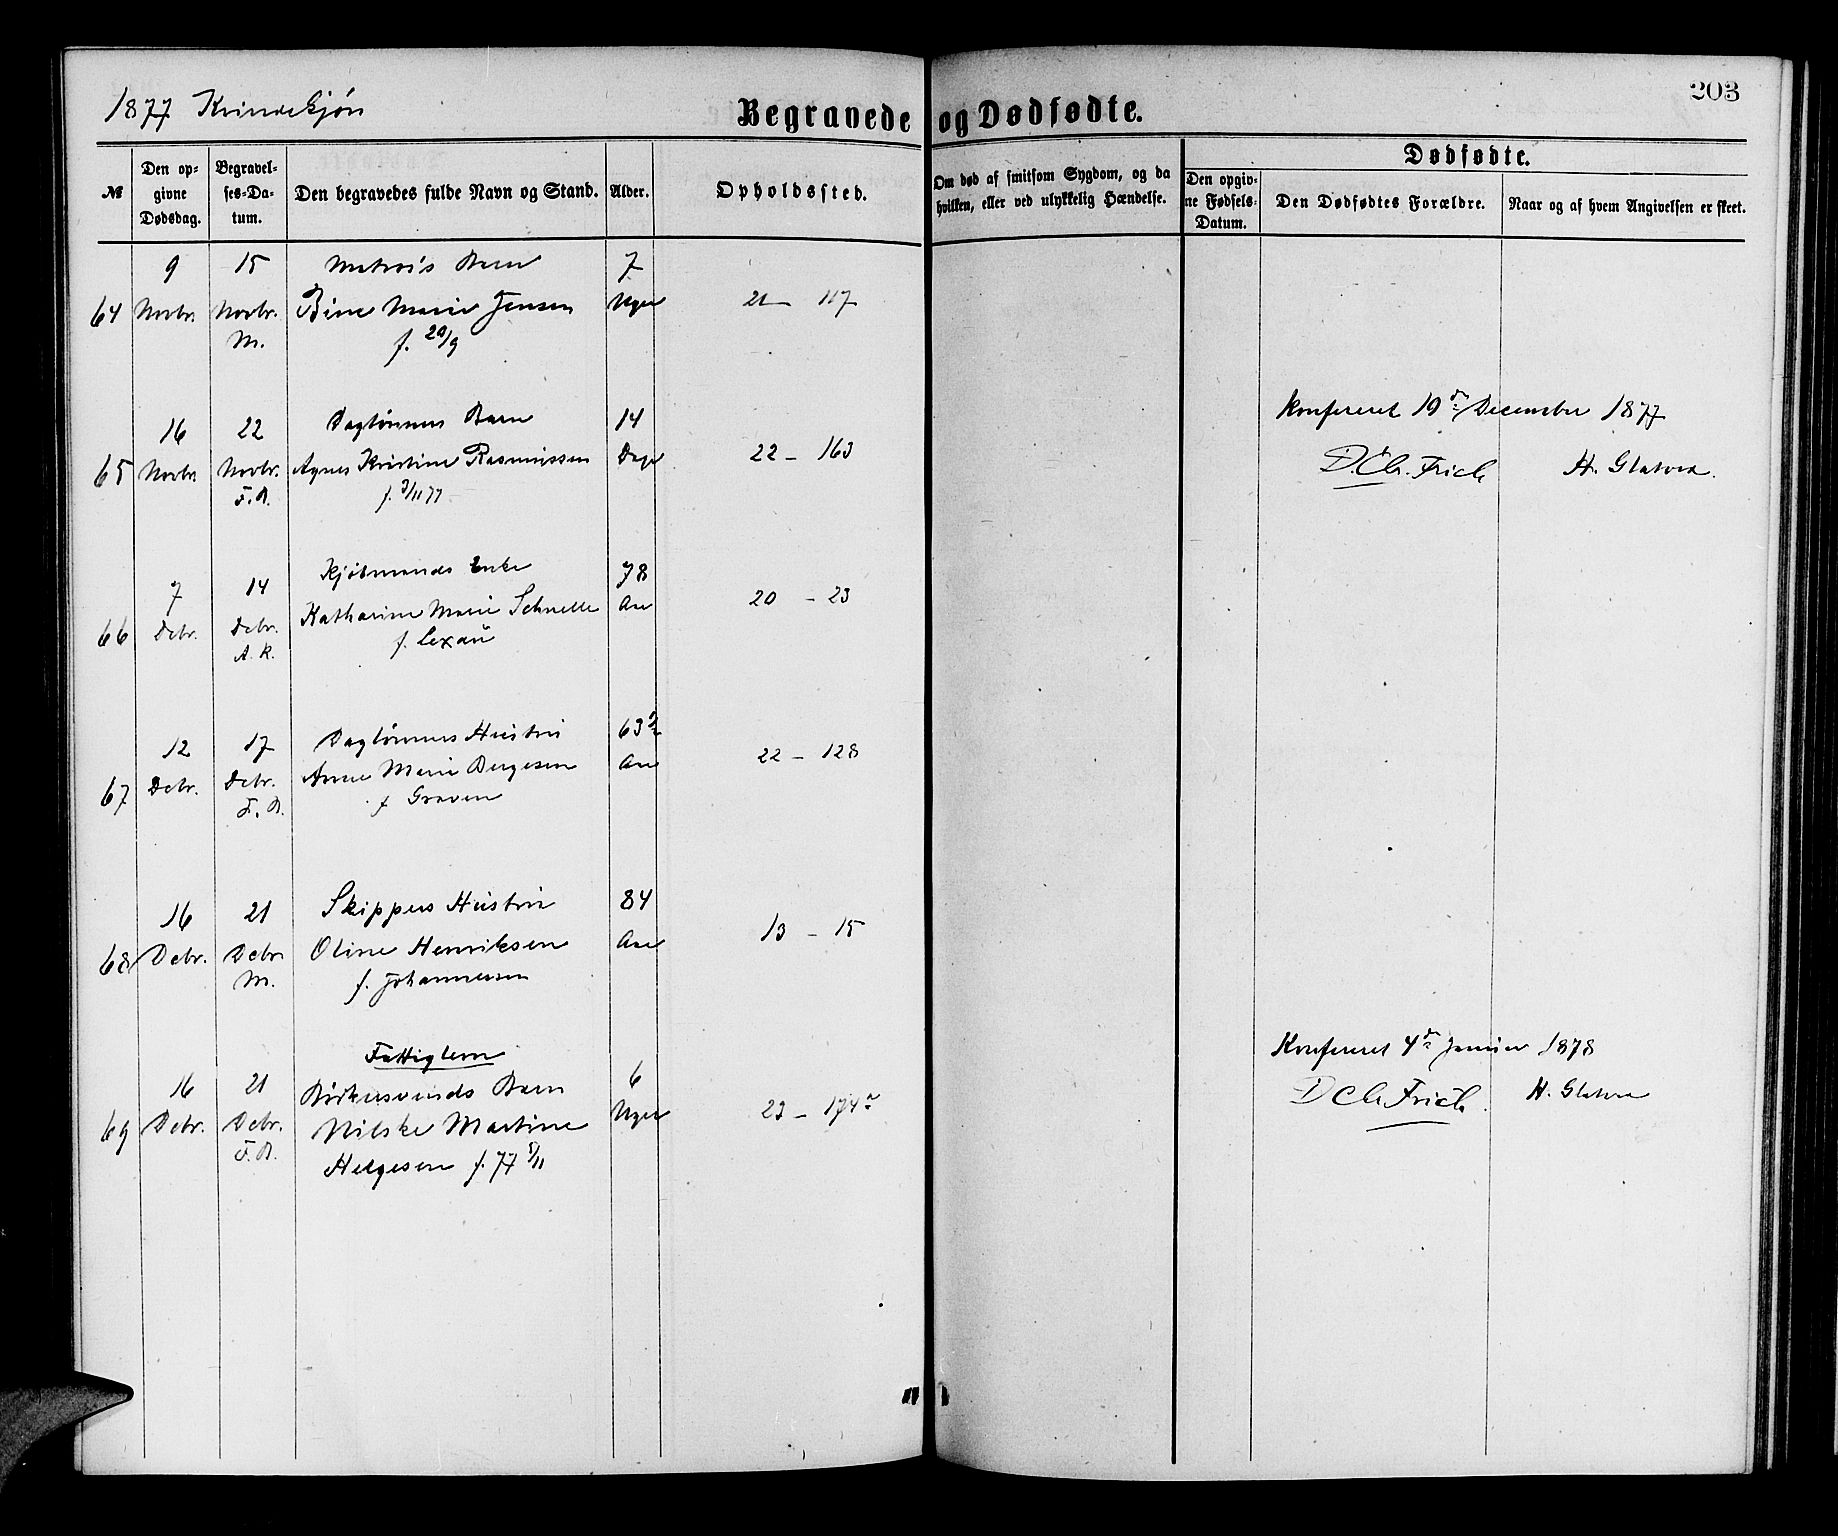 203
1877 Kvindekjøn
Begravede og Dødfødte.
№
Den opgivne Dødsdag.
Begravelses-Datum.
Den begravedes fulde Navn og Stand.
Alder.
Opholdssted.
Om død af smitsom Sygdom, og da hvilken, eller ved ulykkelig Hændelse.
Dødfødte.
Den opgivne Fødsels-Datum.
Den Dødfødtes Forældre.
Naar og af hvem Angivelsen er skeet.
9 15 Matros's Barn 7
64 Novbr. Novbr. Bine Marie Jensen Uger 21 – 117
M. f. 20/9
16 22 Daglønners Barn 14
65 Novbr. Novbr. Agnes Kristine Rasmussen Dage 22 – 163
F.A. f. 3/11 77
Konfereret 19de December 1877
D Chr. Frich H. Glatved.
7 14 Kjøbmands Enke 78
66 Debr. Debr. Katharine Marie Schnelle Aar 20 – 23
A. K. f. Lexau
12 17 Daglønners Hustru 63½
67 Debr. Debr. Anne Marie Bergesen Aar 22 – 128
F. A. f Graven
16 21 Skippers Hustru 84
68 Debr. Debr. Oline Henriksen Aar 13 – 15
M. f. Johannessen
Fattiglem
16 21 Bødkersvends Barn 6
69 Debr. Debr. Nilske Martine Uger 23 – 174a
F.A. Helgesen f. 77 5/11
Konfereret 4de Januar 1878
D Chr Frich. H. Glatved